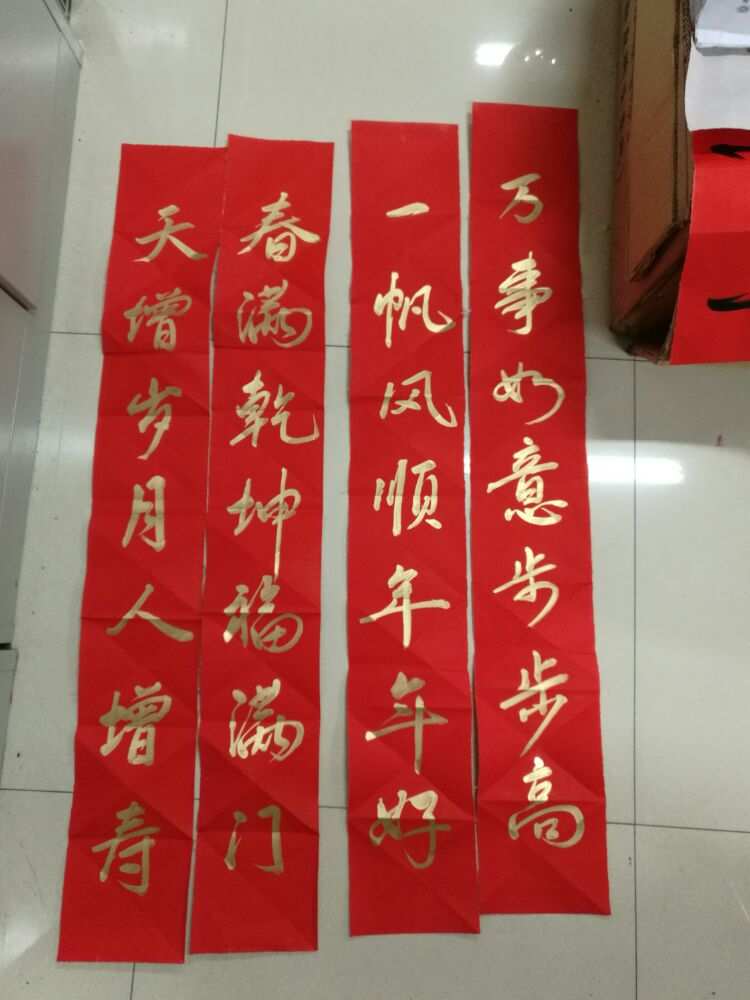 天增岁月人增寿
春满乾坤福满门
一帆风顺年年好
万事如意步步高